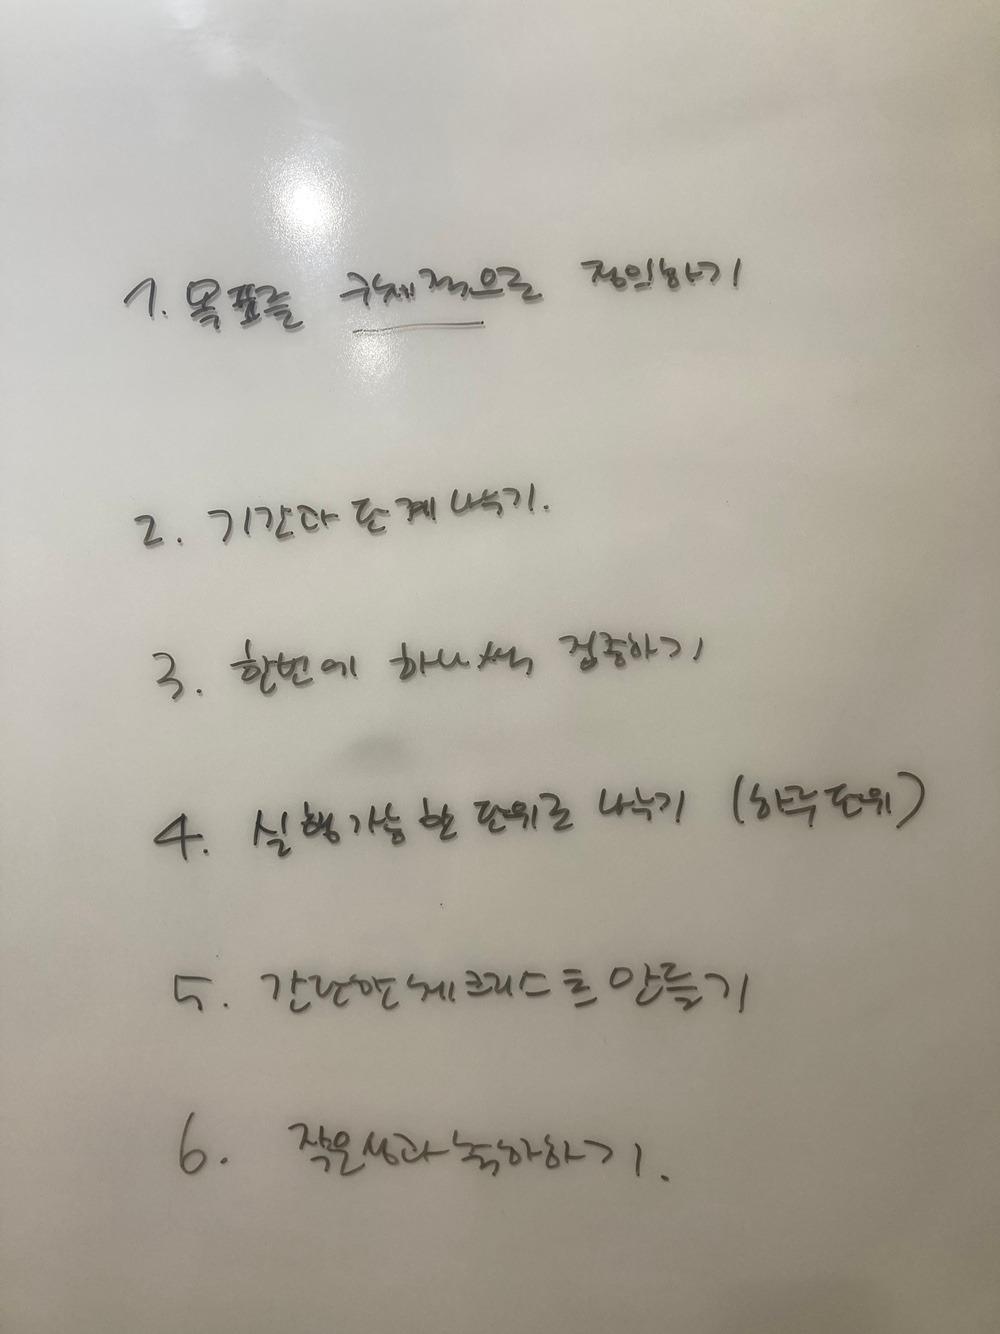 1. 목표를 구체적으로 정의하기
2. 기간과 단계 나누기.
3. 한번에 하나씩 집중하기
4. 실행가능한 단위로 나누기 (하루단위)
5. 간단한 체크리스트 만들기
6. 작은성과 축하하기.